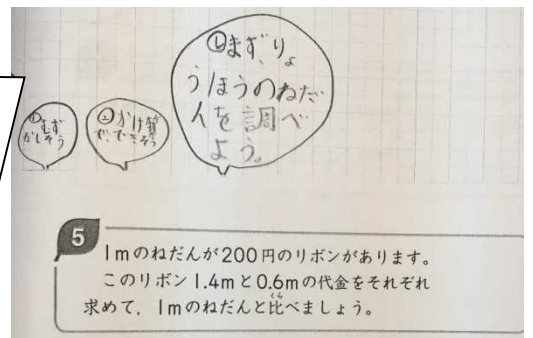 ①むず
かしそう
②かけ算
で、できそう
①まず、りょ
うほうのねだ
んを調べ
よう。
5
1mのねだんが200円のリボンがあります。
このリボン1.4mと0.6mの代金をそれぞれ
求めて，1mのねだんと比べましょう。